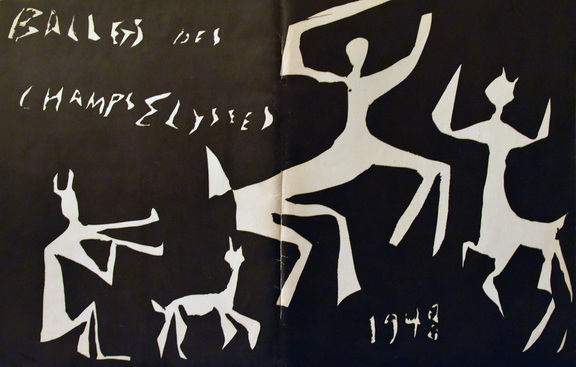 BALLETS DES
CHAMPS ELYSEES
1948